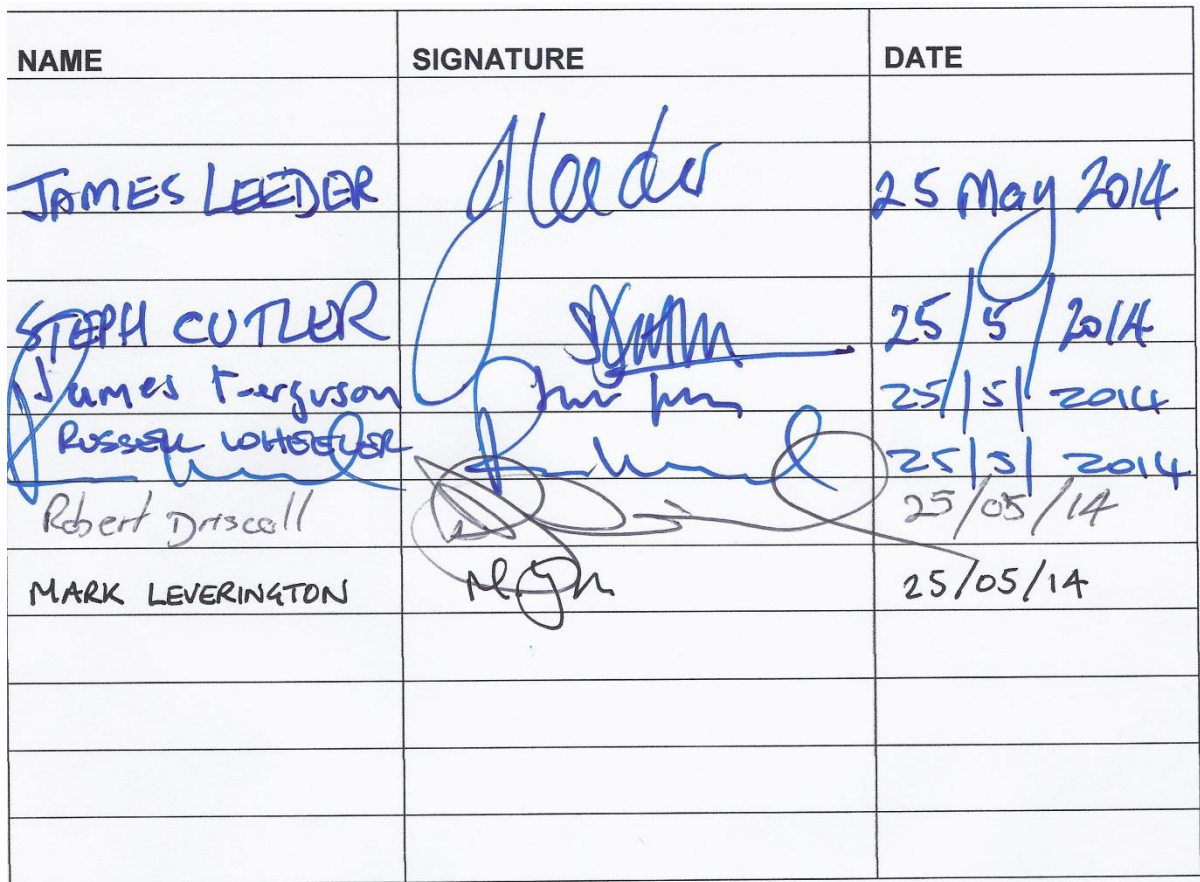 NAME SIGNATURE DATE
JAMES LEEDER JLeeder 25 May 2014
STEPH CUTLER 25/5/2014
James Ferguson 25/5/2014
RUSSELL WHEELER 25/5/2014
Robert Driscoll 25/05/14
MARK LEVERINGTON 25/05/14